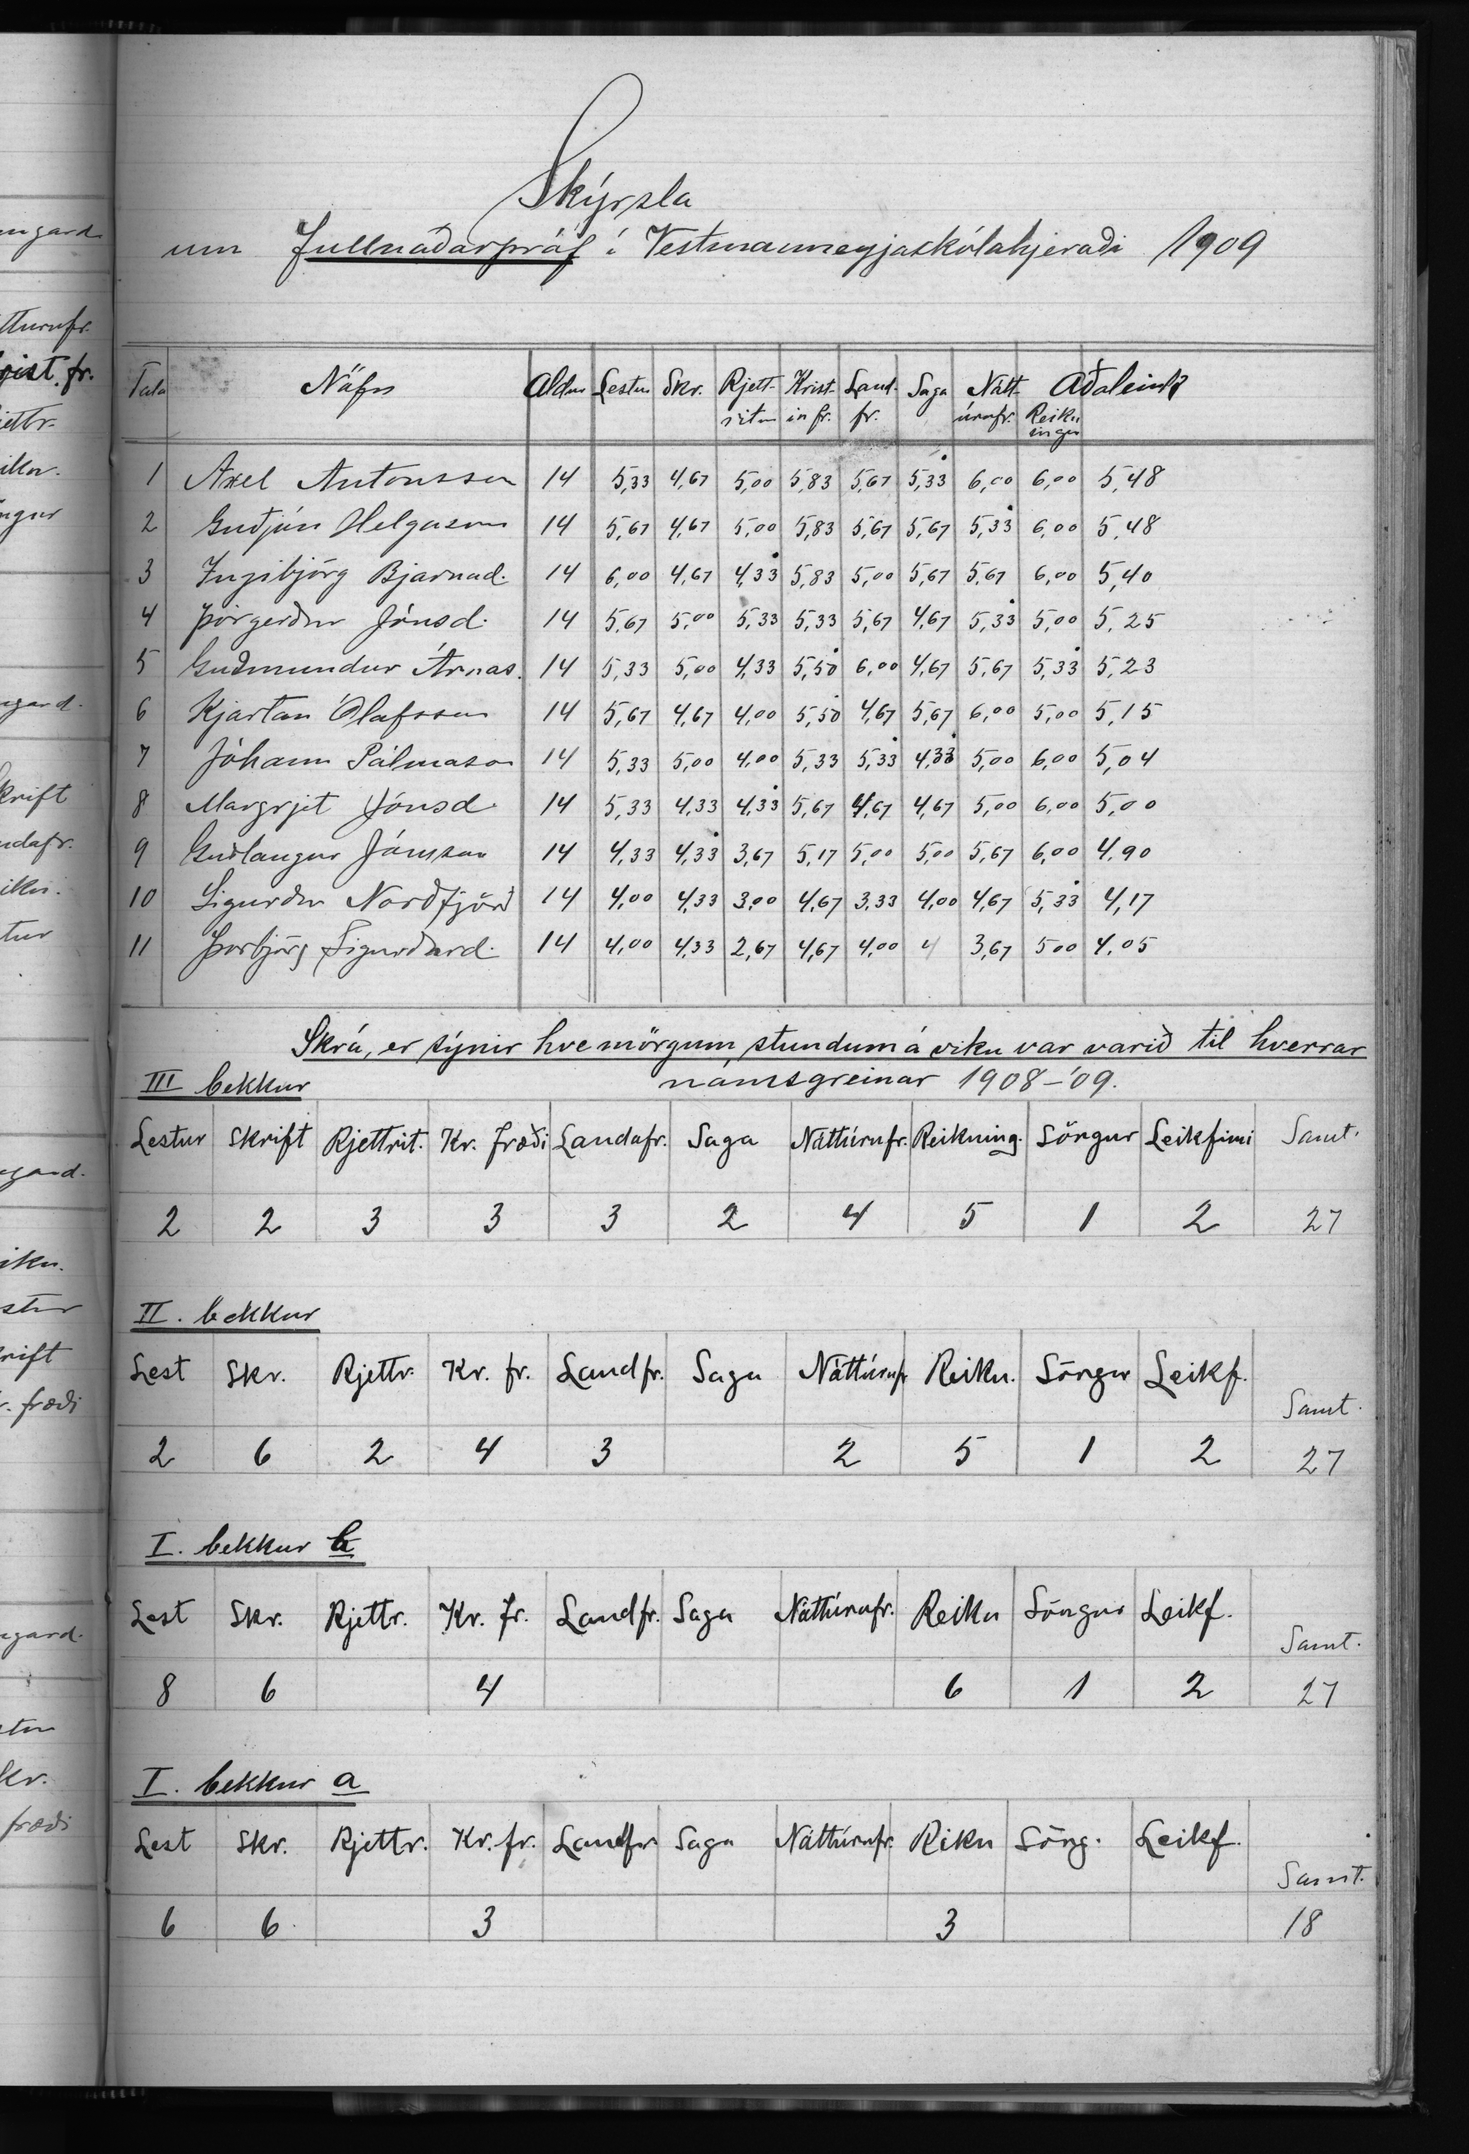 Skýrsla
um Fullnaðarpróf í Vestmanneyjaskólahjeraði 1909
Tala Nöfn Aldur Lestur Skr. Rjett- Krist- Land- Saga Nátt- Aðaleink
ritun in fr. fr. úrufr. Reikn
ingur
1 Axel Antonsson 14 5,33 4,67 5,00 5,83 5,67 5,33 6,00 6,00 5,48
2 Guðjón Helgason 14 5,67 4,67 5,00 5,83 5,67 5,67 5,33 6,00 5,48
3 Ingibjörg Bjarnad. 14 6,00 4,67 4,33 5,83 5,00 5,67 5,67 6,00 5,40
4 Þórgerður Jónsd. 14 5,67 5,00 5,33 5,33 5,67 4,67 5,33 5,00 5,25
5 Guðmundur Árnas. 14 5,33 5,00 4,33 5,50 6,00 4,67 5,67 5,33 5,23
6 Kjartan Ólafsson 14 5,67 4,67 4,00 5,50 4,67 5,67 6,00 5,00 5,15
7 Jóhann Pálmason 14 5,33 5,00 4,00 5,33 5,33 4,33 5,00 6,00 5,04
8 Margrjet Jónsd. 14 5,33 4,33 4,33 5,67 4,67 4,67 5,00 6,00 5,00
9 Guðlaugur Jónsson 14 4,33 4,33 3,67 5,17 5,00 5,00 5,67 6,00 4,90
10 Sigurður Norðfjörð 14 4,00 4,33 3,00 4,67 3,33 4,00 4,67 5,33 4,17
11 Þorbjörg Sigurðard. 14 4,00 4,33 2,67 4,67 4,00 4 3,67 500 4,05
Skrá, er sýnir hve mörgum stundum á viku var varið til hverrar
námsgreinar 1908-'09.
III bekkur
Lestur Skrift Rjettrit. Kr. fræði Landafr. Saga Náttúrufr. Reikning. Söngur Leikfimi Samt.
2 2 3 3 3 2 4 5 1 2 27
II. bekkur
Lest Skr. Rjettr. Kr. fr. Landfr. Saga Náttúrufr Reikn. Söngur Leikf.
Samt.
2 6 2 4 3 2 5 1 2 27
I. bekkur b
Lest Skr. Rjettr. Kr. fr. Landfr. Saga Náttúrufr. Reikn Söngur Leikf.
Samt.
8 6 4 6 1 2 27
I. bekkur a
Lest Skr. Rjettr. Kr. fr. Landfr Saga Náttúrufr. Rikn Söng. Leikf.
Samt.
6 6 3 3 18